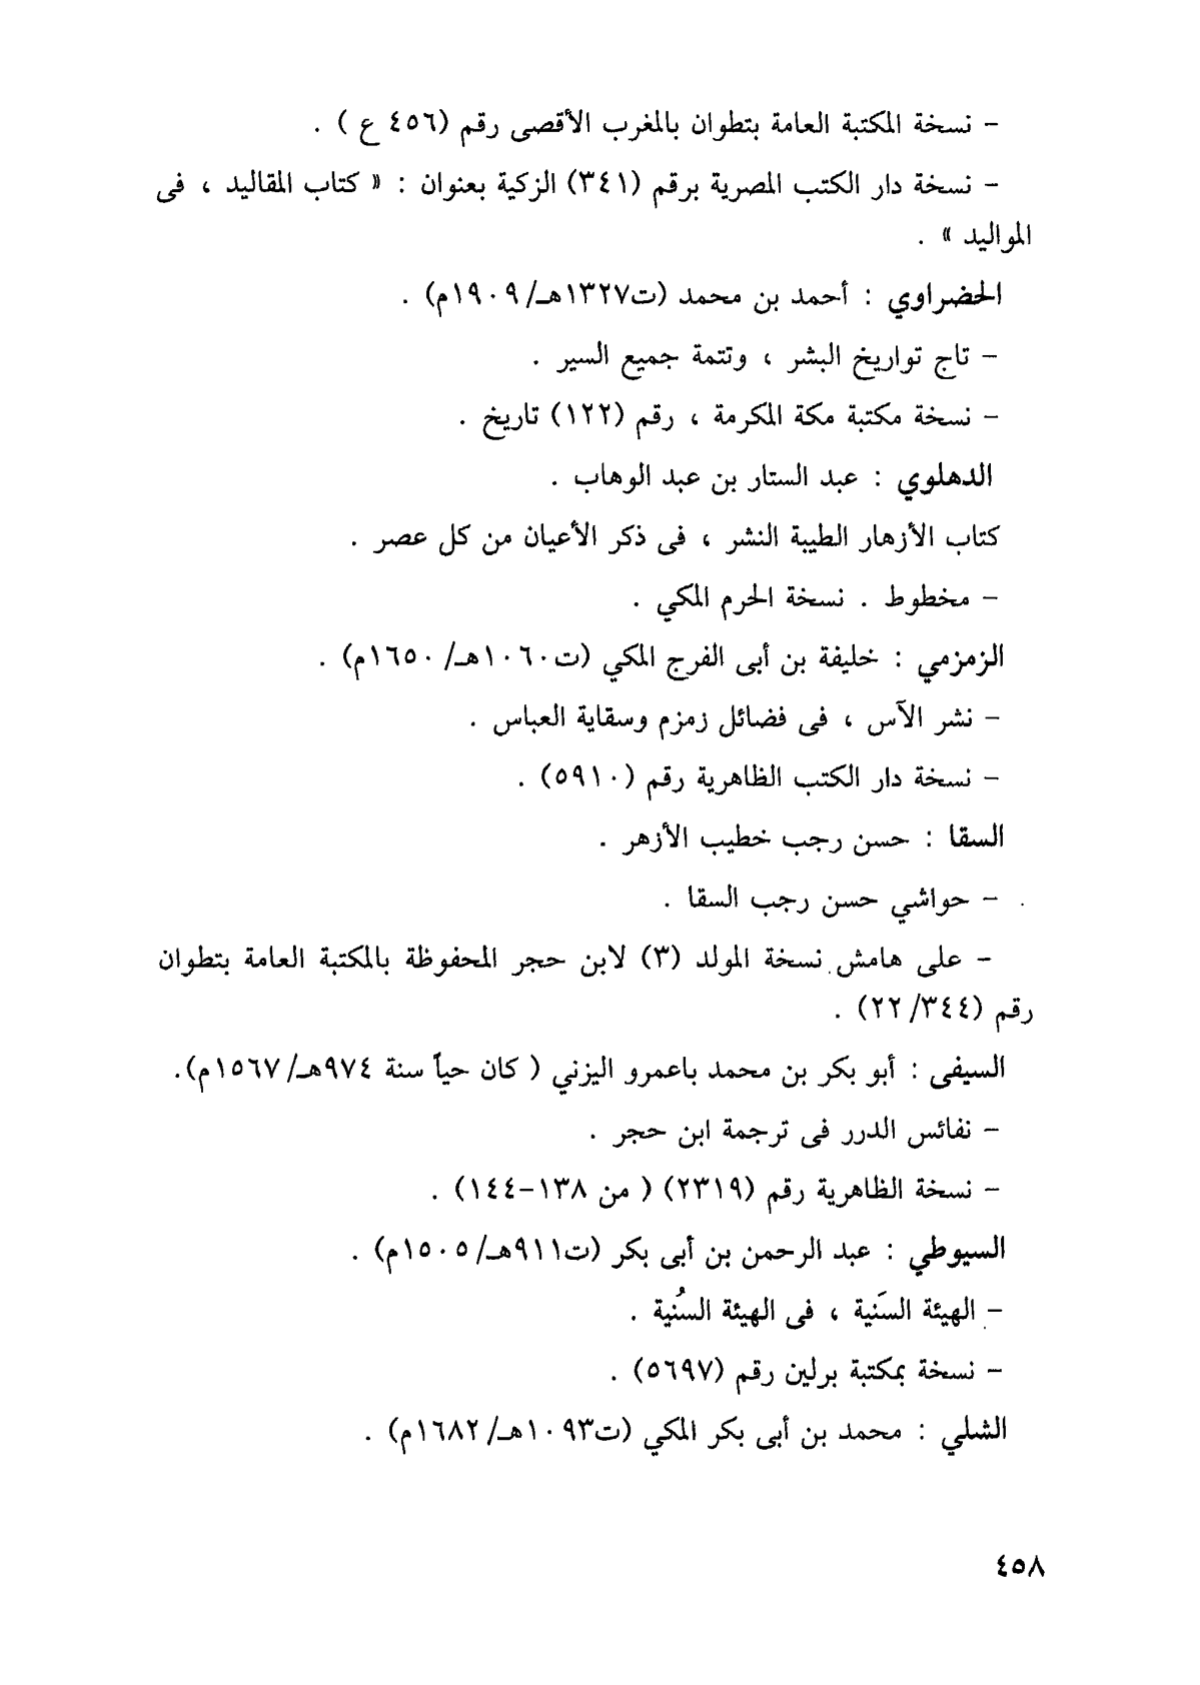 - نسخة المكتبة العامة بتطوان بالمغرب الأقصى رقم (٤٥٦ ع ) .
- نسخة دار الكتب المصرية برقم (٣٤١) الزكية بعنوان : « كتاب المقاليد ، فى
المواليد » .
الحضراوي : أحمد بن محمد (ت١٣٢٧هـ/١٩٠٩م) .
- تاج تواريخ البشر ، وتتمة جميع السير .
- نسخة مكتبة مكة المكرمة ، رقم (١٢٢) تاريخ .
الدهلوي : عبد الستار بن عبد الوهاب .
كتاب الأزهار الطيبة النشر ، فى ذكر الأعيان من كل عصر .
- مخطوط . نسخة الحرم المكي .
الزمزمي : خليفة بن أبى الفرج المكي (ت١٠٦٠هـ/١٦٥٠م) .
- نشر الآس ، فى فضائل زمزم وسقاية العباس .
- نسخة دار الكتب الظاهرية رقم (٥٩١٠) .
السقا : حسن رجب خطيب الأزهر .
- حواشي حسن رجب السقا .
- على هامش نسخة المولد (٣) لابن حجر المحفوظة بالمكتبة العامة بتطوان
رقم (٢٢/٣٤٤) .
السيفى : أبو بكر بن محمد باعمرو اليزني ( كان حياً سنة ٩٧٤هـ/١٥٦٧م).
- نفائس الدرر فى ترجمة ابن حجر .
- نسخة الظاهرية رقم (٢٣١٩) ( من ١٣٨-١٤٤) .
السيوطي : عبد الرحمن بن أبى بكر (ت٩١١هـ/١٥٠٥م) .
- الهيئة السَنية ، فى الهيئة السُنية .
- نسخة بمكتبة برلين رقم (٥٦٩٧) .
الشلي : محمد بن أبى بكر المكي (ت١٠٩٣هـ/١٦٨٢م) .
٤٥٨